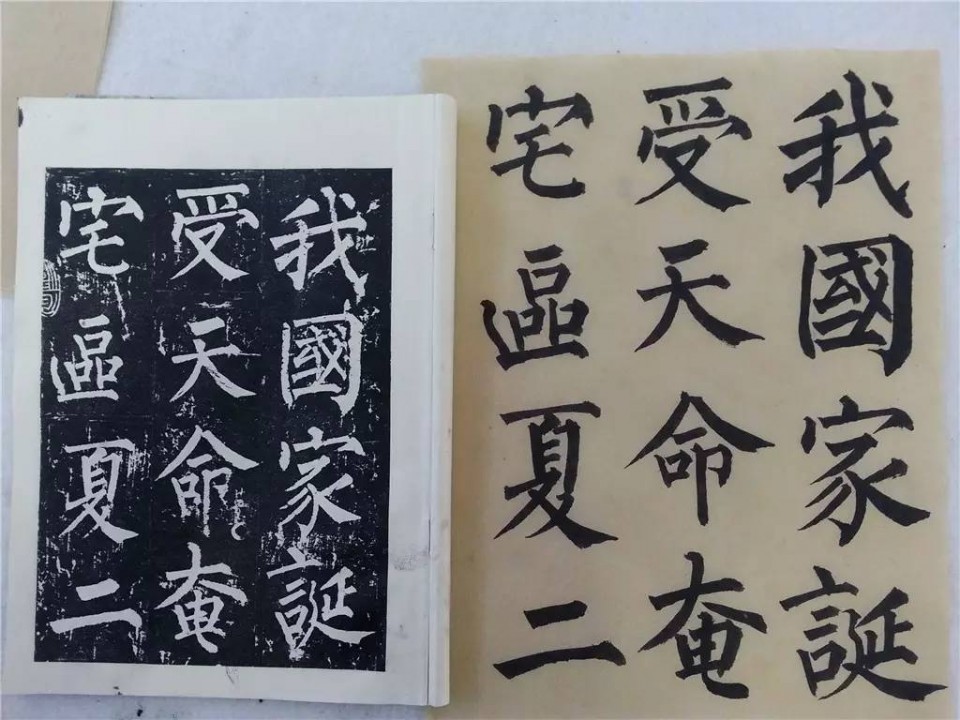 我國家誕
受天命奄
宅區夏二
我國家誕
受天命奄
宅區夏二